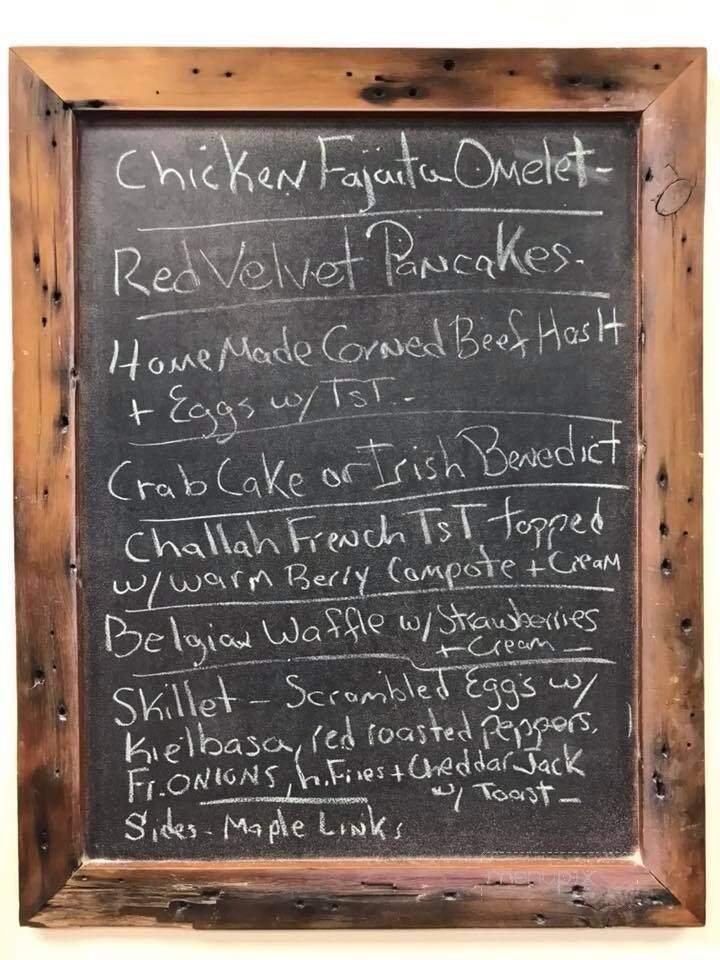 Chicken Fajaita Omelet-
Red Velvet Pancakes-
HomeMade Corned Beef Hash
+ Eggs w/ TsT.-
Crab Cake or Irish Benedict
Challah French TsT topped
w/ warm Berry Compote + Cream
Belgian Waffle w/ Strawberries
+ Cream -
Skillet - Scrambled Eggs w/
Kielbasa, red roasted peppers,
Fr. ONIONS, h. Fries + Cheddar Jack
w/ Toast -
Sides - Maple Links
menupix